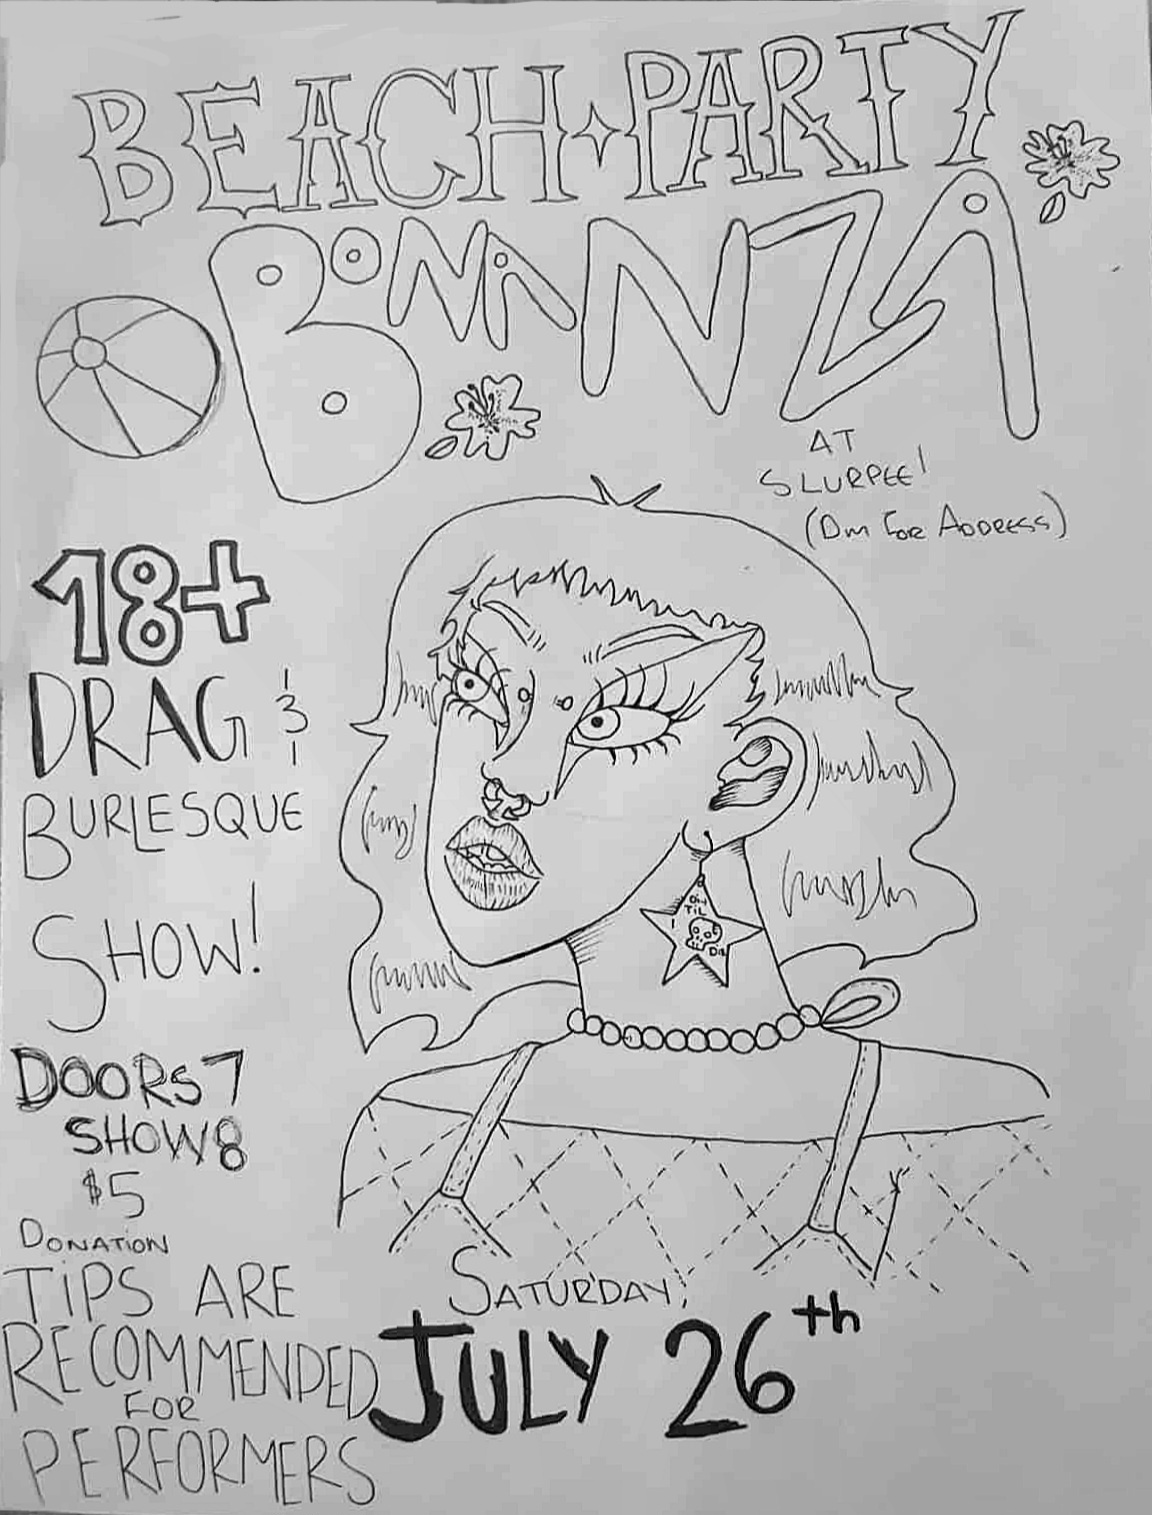 BEACH PARTY
BONANZA
AT
SLURPEE!
(DM FOR ADDRESS)
18+
DRAG &
BURLESQUE
SHOW!
DOORS 7
SHOW 8
$5
DONATION
TIPS ARE
RECOMMENDED
FOR
PERFORMERS
TIL
I
DIE
SATURDAY,
JULY 26th